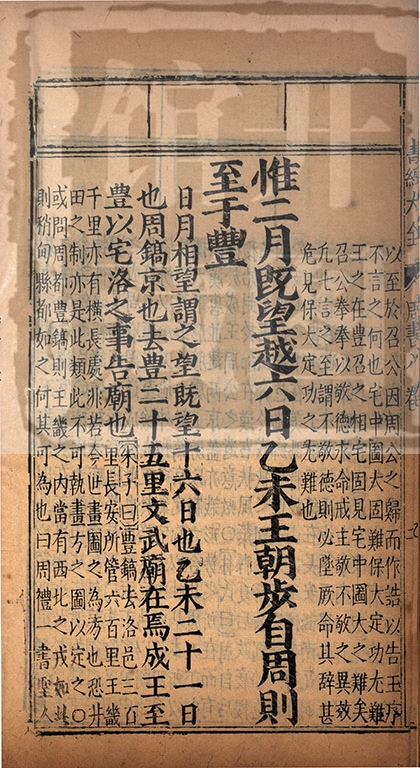 以至於召公因周公之歸而作誥以告王序
不言之何也宅中圖大固難保大定功尤難
王之在豐召之相宅固見宅中圖大之難矣
召公奉奉以敬德求命戒王敬不敬之異效
凡七言之至謂不敬德則必墜厥命其辭甚
危見保大定功之尤難也
惟二月既望越六日乙未王朝步自周則
至于豐
日月相望謂之望既望十六日也乙未二十一日
也周鎬京也去豐二十五里文武廟在焉成王至
豐以宅洛之事告廟也
朱子曰豐鎬去洛邑三百
里長安所管六百里王畿
千里亦有橫長處非若今世畫圖之為方也恐井
田之制亦是此類不可執畫方之圖以定之○
或問周都豐鎬則王畿之內當有西北之戎如此
則稍甸縣都如之何其可為也曰周禮一書聖人